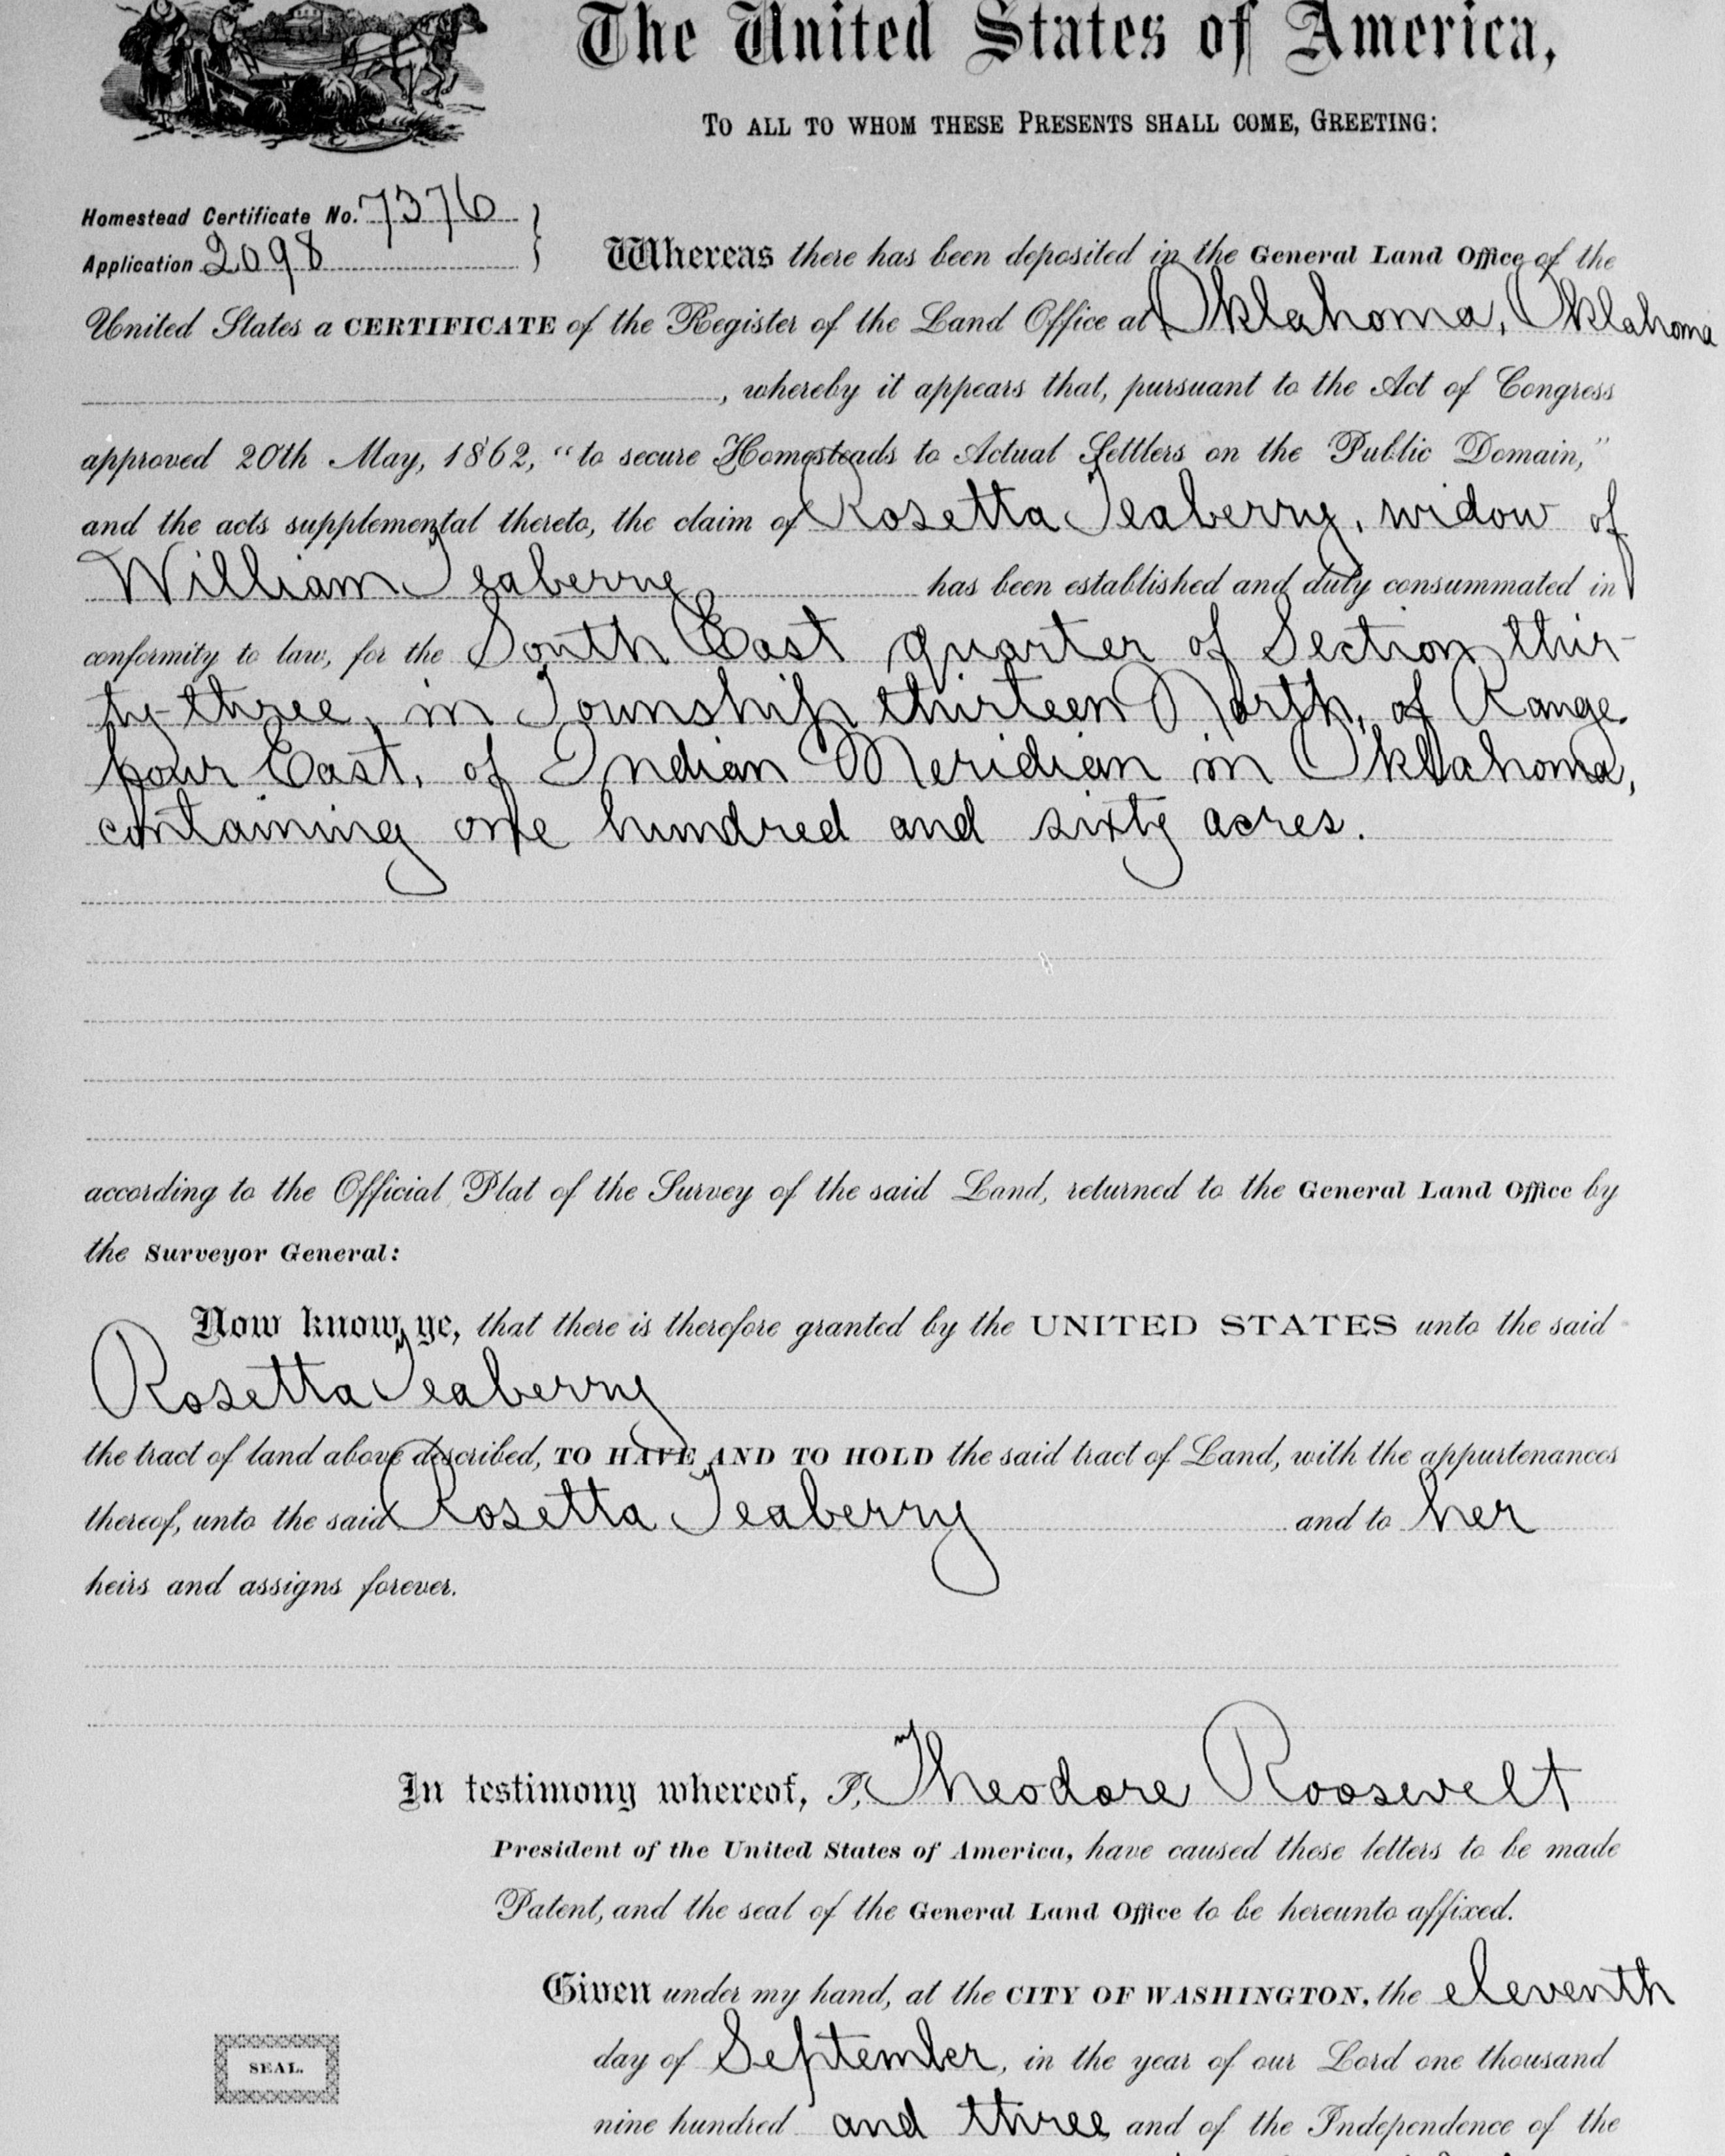 The United States of America,
TO ALL TO WHOM THESE PRESENTS SHALL COME, GREETING:
Homestead Certificate No. 7376
Application 2098
Whereas there has been deposited in the General Land Office of the
United States a CERTIFICATE of the Register of the Land Office at Oklahoma, Oklahoma
, whereby it appears that, pursuant to the Act of Congress
approved 20th May, 1862, "to secure Homesteads to Actual Settlers on the Public Domain,"
and the acts supplemental thereto, the claim of Rosetta Teaberry, widow of
William Teaberry has been established and duly consummated in
conformity to law, for the South East quarter of Section thir-
ty-three, in Township thirteen North, of Range
four East, of Indian Meridian in Oklahoma,
containing one hundred and sixty acres.
according to the Official Plat of the Survey of the said Land, returned to the General Land Office by
the Surveyor General:
Now know ye, that there is therefore granted by the UNITED STATES unto the said
Rosetta Teaberry
the tract of land above described, TO HAVE AND TO HOLD the said tract of Land, with the appurtenances
thereof, unto the said Rosetta Teaberry and to her
heirs and assigns forever.
In testimony whereof, I, Theodore Roosevelt
President of the United States of America, have caused these letters to be made
Patent, and the seal of the General Land Office to be hereunto affixed.
Given under my hand, at the CITY OF WASHINGTON, the eleventh
day of September, in the year of our Lord one thousand
SEAL.
nine hundred and three, and of the Independence of the